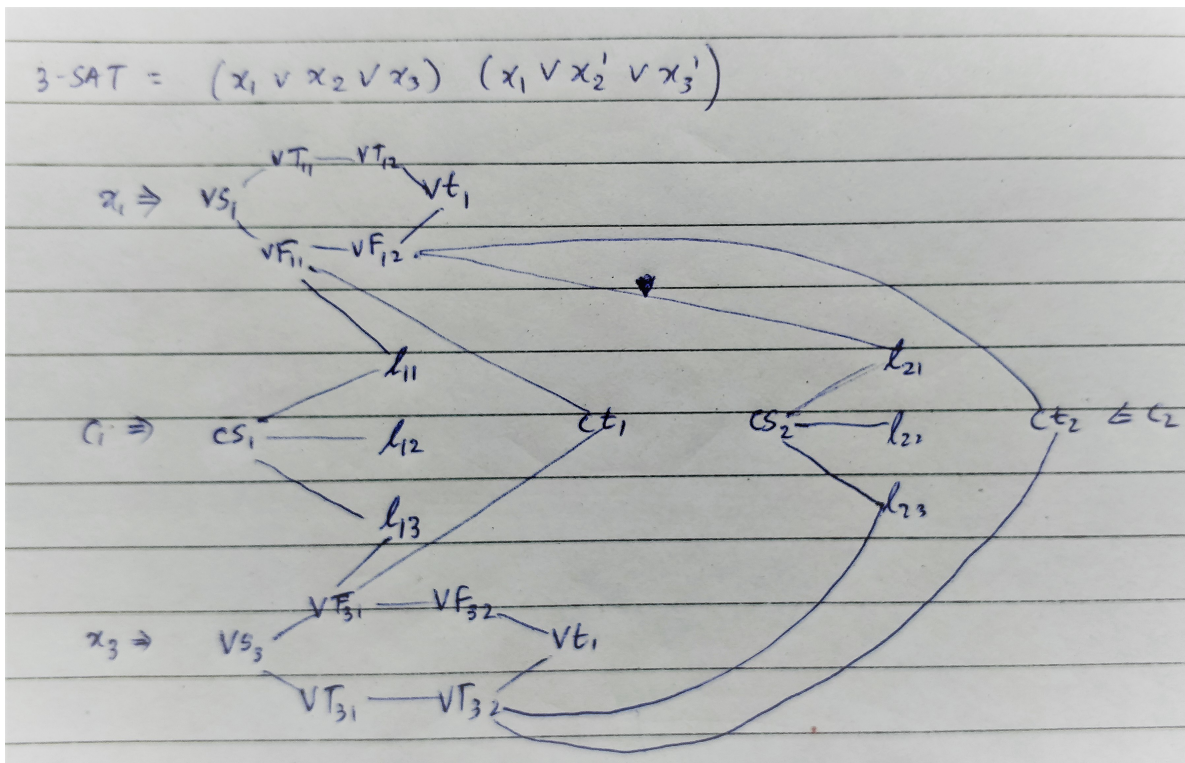 3-SAT = (x₁ ∨ x₂ ∨ x₃) (x₁ ∨ x₂' ∨ x₃')
VT₁₁ VT₁₂
x₁ ⇒ VS₁ Vt₁
VF₁₁ VF₁₂
l₁₁ l₂₁
C₁ ⇒ CS₁ l₁₂ Ct₁ CS₂ l₂₂ Ct₂ ⇐ C₂
l₁₃ l₂₃
VF₃₁ VF₃₂
x₃ ⇒ VS₃ Vt₁
VT₃₁ VT₃₂